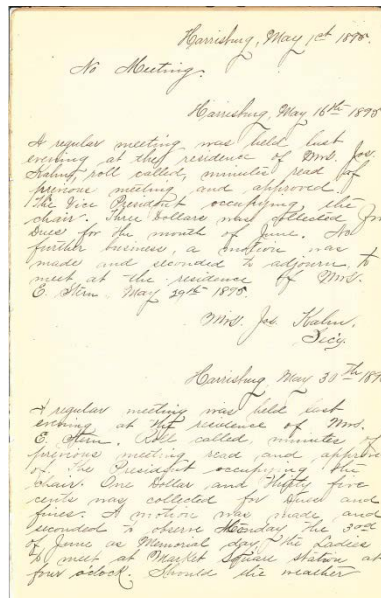 Harrisburg, May 1st 1895.
No Meeting.
Harrisburg, May 16th 1895
A regular meeting was held last
evening at the residence of Mrs. Jos.
Kahn, roll called, minutes read of
previous meeting and approved.
The Vice President occupying the
chair. Three Dollars was collected for
Dues for the month of June. No
further business, a motion was
made and seconded to adjourn to
meet at the residence of Mrs.
E. Stern May 29th 1895.
Mrs. Jos. Kahn,
Sec'y.
Harrisburg, May 30th 189
A regular meeting was held last
evening at the residence of Mrs.
E. Stern. Roll called, minutes of
previous meeting read and approv
of. The President occupying the
chair. One Dollar and thirty five
cents was collected for dues and
fines. A motion was made and
seconded to observe Monday the 3rd
of June as Memorial day, the Ladies
to meet at Market Square station at
four o'clock. Should the weather